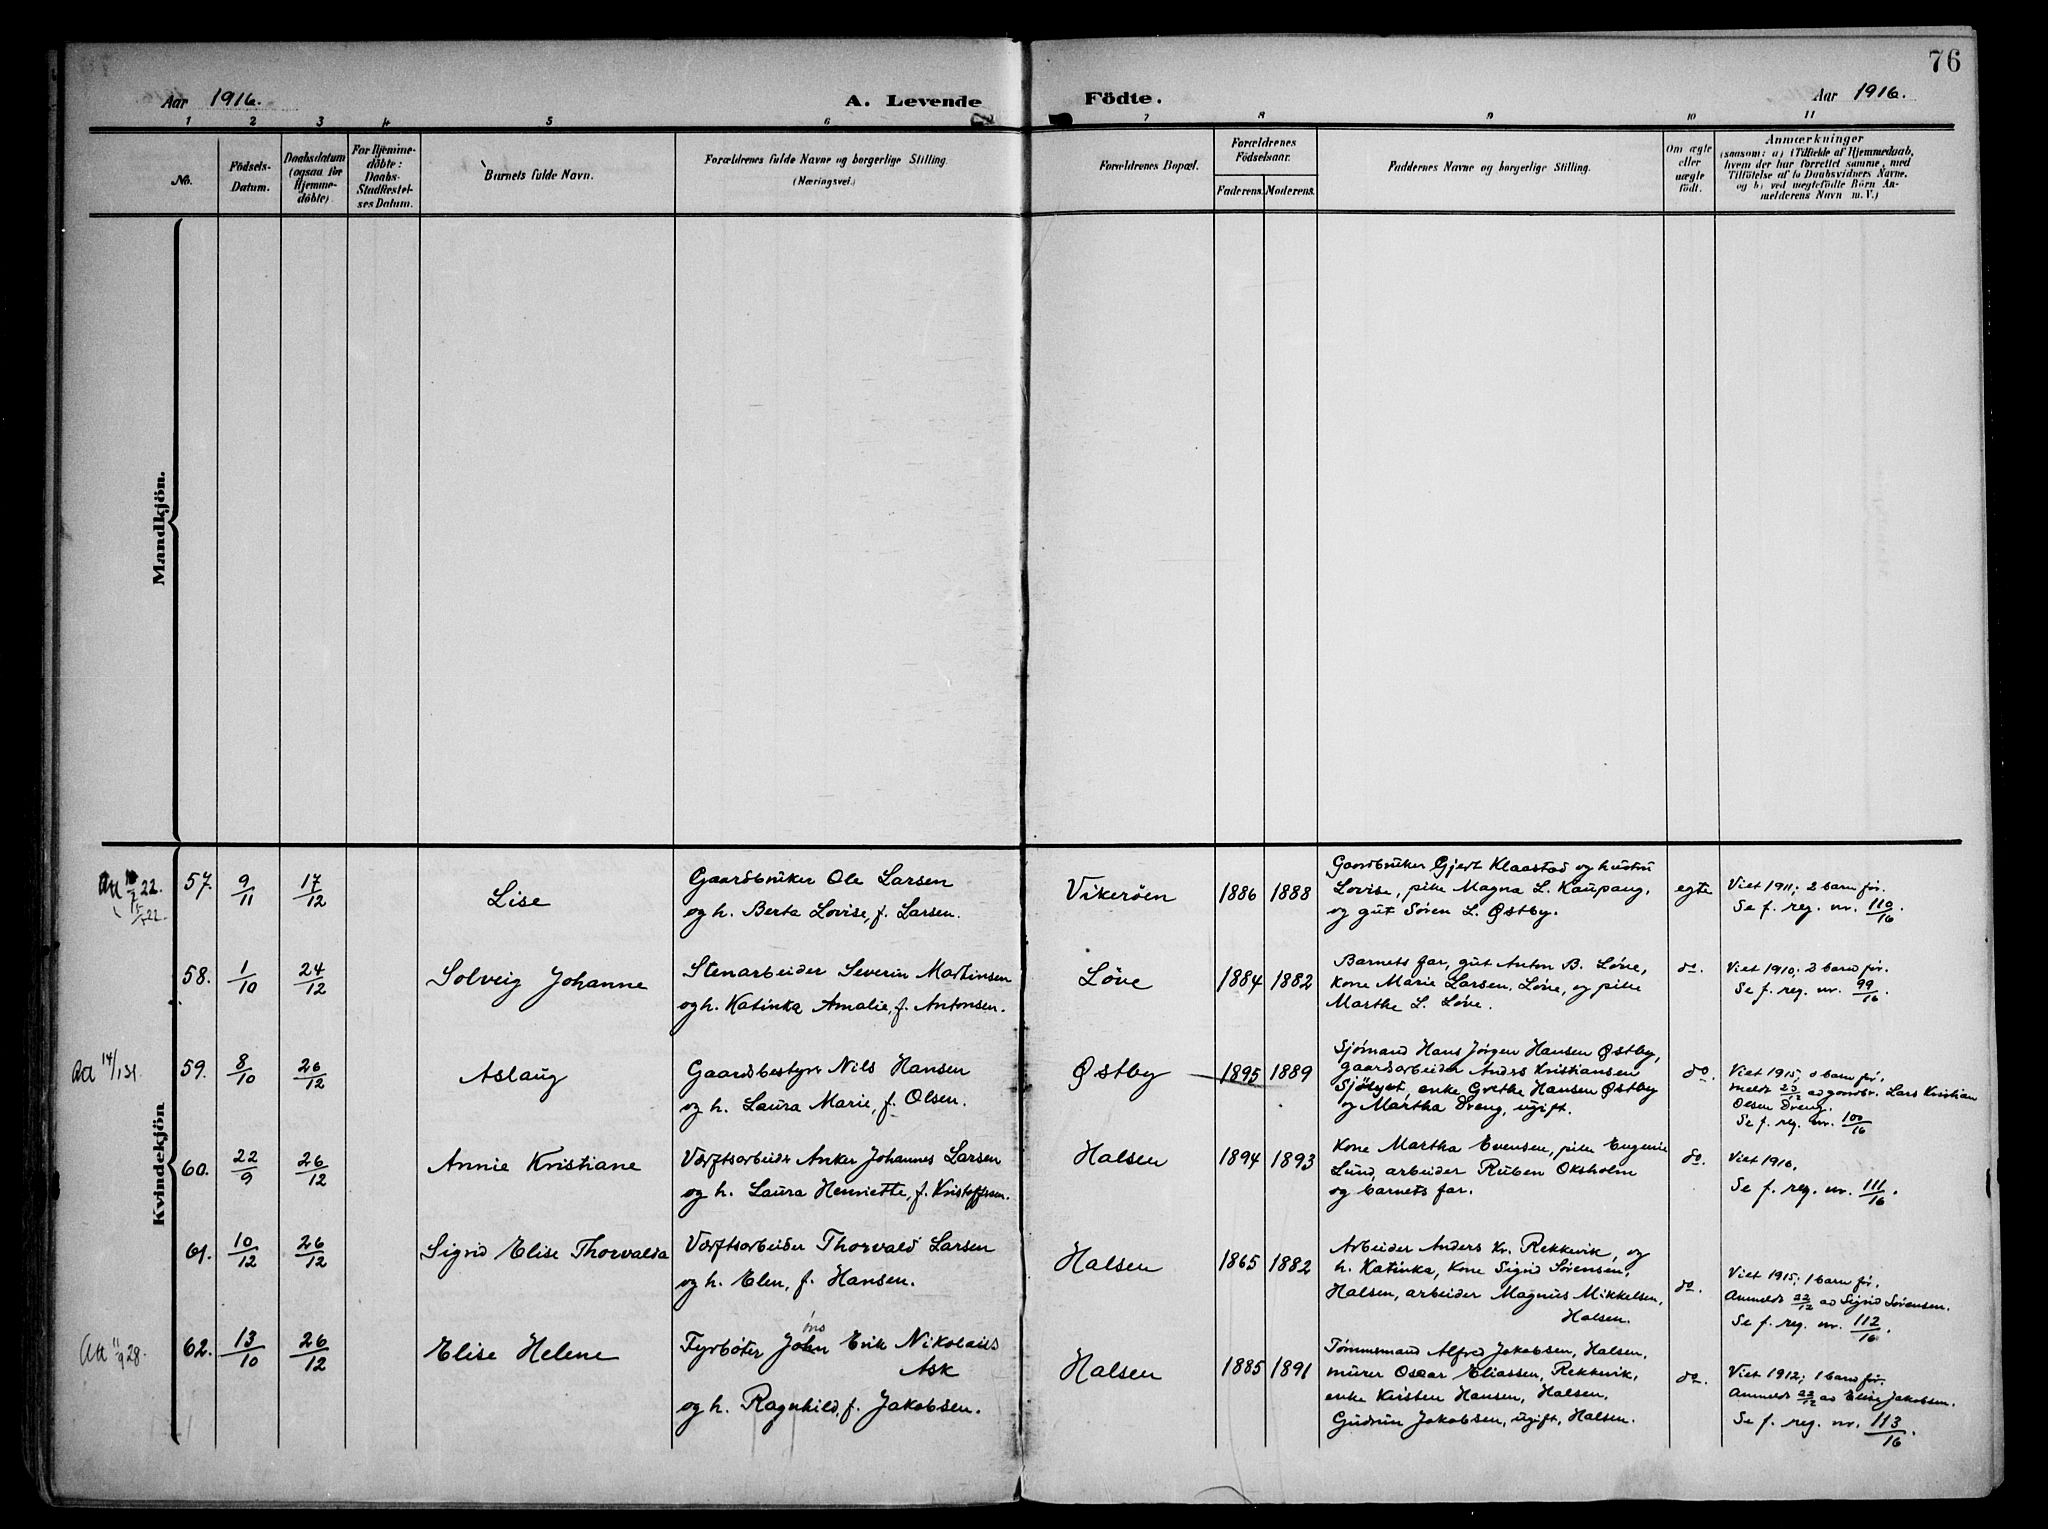 76
Aar 1916.
A. Levende Födte.
Aar 1916.
1 2 3 4 5 6 7 8 9 10 11
No.
Födsels-
Datum.
Daabsdatum
(ogsaa for
Hjemme-
döbte).
For Hjemme-
döbte:
Daabs-
Stadfæstel-
ses Datum.
Barnets fulde Navn.
Forældrenes fulde Navne og borgerlige Stilling.
(Næringsvei.)
Forældrenes Bopæl.
Forældrenes
Födselsaar.
Faderens. Moderens.
Faddernes Navne og borgerlige Stilling.
Om ægte
eller
uægte
født.
Anmærkninger
(saasom: a) i Tilfælde af Hjemmedaab,
hvem der har forrettet samme, med
Tilföielse af to Daabsvidners Navne,
og b) ved uægtefödte Börn An-
melderens Navn m. V.)
Mandkjön.
Kvindekjön
57. 9/11 17/12
Lise
Gaardbruker Ole Larsen
og h. Berta Lovise, f. Larsen.
Vikerøen
1886 1888
Gaardbruker Gjert Klaastad og hustru
Lovise, pike Magna L. Kaupang,
og gut Søren L. Østby.
egte
Viet 1911; 2 barn før.
Se f. reg. nr. 110/16.
58. 1/10 24/12
Solveig Johanne
Stenarbeider Severin Martinsen
og h. Katinka Amalie, f. Antonsen.
Løve
1884 1882
Barnets far, gut Anton B. Løve,
kone Marie Larsen, Løve, og pike
Marthe L. Løve.
do.
Viet 1910; 2 barn før.
Se f. reg. nr. 99/16.
Att 14/1 31.
59. 8/10 26/12
Aslaug
Gaardsbestyr Nils Hansen
og h. Laura Marie, f. Olsen.
Østby
1895 1889
Sjømand Hans Jørgen Hansen Østby,
gaardsarbeider Anders Kristiansen
Sjølyst, enke Grethe Hansen Østby
og Martha Dreng, ugift.
do.
Viet 1915; 0 barn før.
meldt 23/12 av gaardbr. Lars Kristian
Olsen Dreng.
Se f. reg. nr. 100/16
60. 22/9 26/12
Annie Kristiane
Værftsarbeider Anker Johannes Larsen
og h. Laura Henriette, f. Kristoffersen.
Halsen
1894 1893
Kone Martha Evensen, pike Eugenie
Lund, arbeider Ruben Oksholm
og barnets far.
do.
Viet 1916.
Se f. reg. nr. 111/16.
61. 10/12 26/12
Sigrid Elise Thorvalda
Værftsarbeider Thorvald Larsen
og h. Elen, f. Hansen.
Halsen
1865 1882
Arbeider Anders Kr. Rekkevik, og
h. Katinka, kone Sigrid Sørensen,
Halsen, arbeider Magnus Mikkelsen,
Halsen.
do.
Viet 1915; 1 barn før.
Anmeldt 22/12 av Sigrid Sørensen.
Se f. reg. nr. 112/16.
Att 11/9 28.
62. 13/10 26/12
Elise Helene
Fyrbøter John Erik Nikolaus
Ask
og h. Ragnhild, f. Jakobsen.
Halsen
1885 1891
Tømmermand Alfred Jakobsen, Halsen,
murer Oscar Eliassen, Rekkevik,
enke Kirsten Hansen, Halsen,
Gudrun Jakobsen, ugift, Halsen.
do.
Viet 1912; 1 barn før.
Anmeldt 22/12 av Elise Jakobsen.
Se f. reg. nr. 113/16.